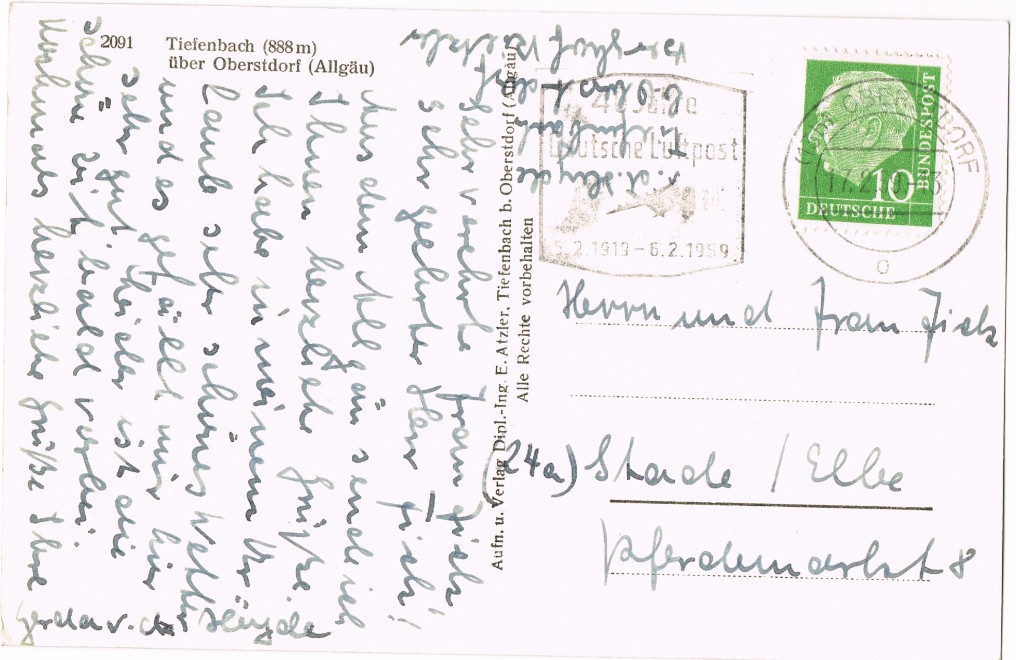 2091 Tiefenbach (888 m)
über Oberstdorf (Allgäu)
Sehr verehrte Frau Fick!
Sehr geehrter Herr Fick!
Aus dem Allgäu sende ich
Ihnen herzliche Grüße.
Ich habe in meinem Ur-
laub sehr schönes Wetter
und es gefällt mir hier
sehr gut. Leider ist die
schöne Zeit bald vorbei.
Nochmals herzliche Grüße Ihre
Gerda v. d. Heyde
v. d. Heyde
Tiefenbach
b. Oberstdorf
Aufn. u. Verlag Dipl.-Ing. E. Atzler, Tiefenbach b. Oberstdorf (Allgäu)
Alle Rechte vorbehalten
40 Jahre
Deutsche Luftpost
5.2.1919 – 6.2.1959
DEUTSCHE
BUNDESPOST
10
Herrn und Frau Fick
(24a) Stade / Elbe
Pferdemarkt 8